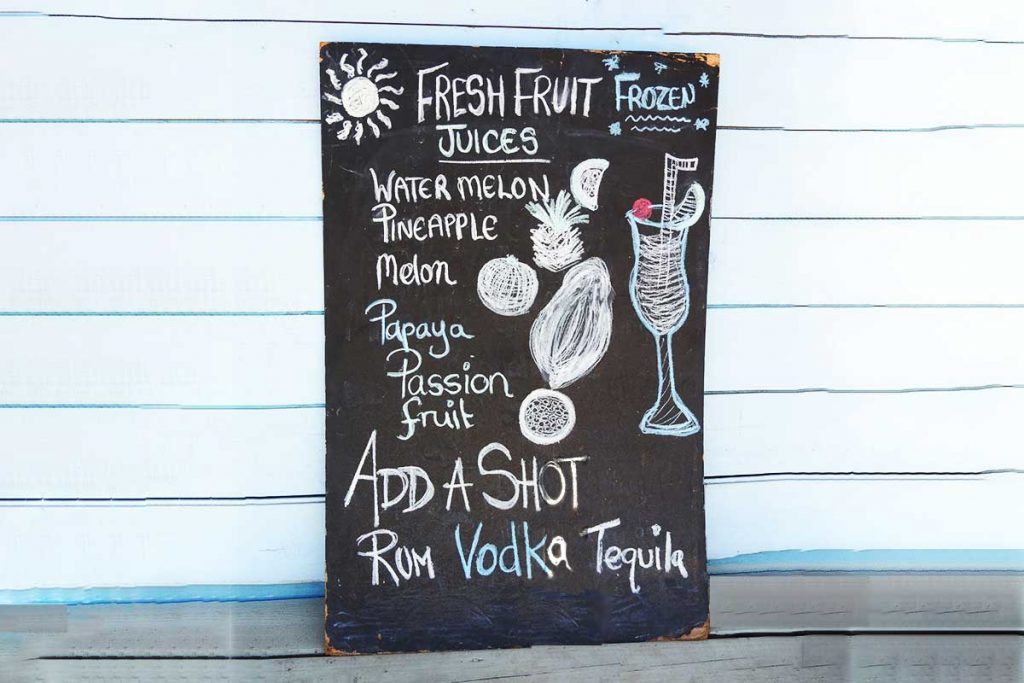 FRESH FRUIT FROZEN
JUICES
WATER MELON
PINEAPPLE
Melon
Papaya
Passion
fruit
ADD A SHOT
RUM Vodka Tequila